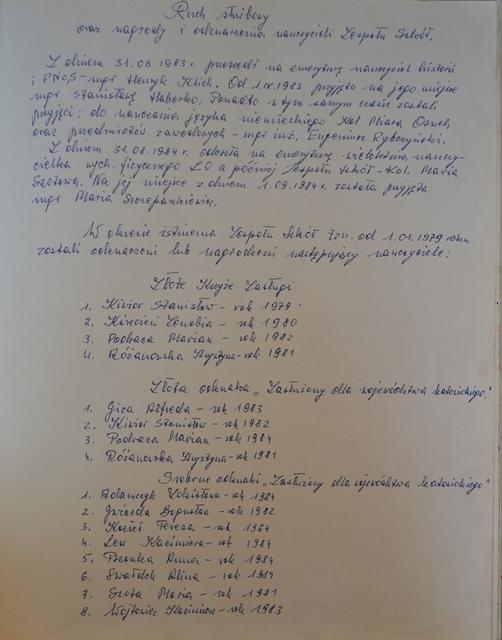 Ruch służbowy
oraz nagrody i odznaczenia nauczycieli Zespołu Szkół.
Z dniem 31.08.1983 r. przeszedł na emeryturę nauczyciel historii
i PNOS - mgr Henryk Klich. Od 1.IX.1983 przyjęto na jego miejsce
mgr Stanisławę Haberko. Ponadto w tym samym czasie zostali
przyjęci: do nauczania języka niemieckiego kol. Maria
oraz przedmiotów zawodowych - mgr inż. Eugeniusz
Z dniem 31.08.1984 r. odeszła na emeryturę wieloletnia nauczy-
cielka wych. fizycznego LO a później Zespołu Szkół - Kol. Maria
Szotowa. Na jej miejsce z dniem 1.09.1984 r. została przyjęta
mgr Maria Szczepankiewicz.
W okresie istnienia Zespołu Szkół tzn. od 1.01.1979 roku
zostali odznaczeni lub nagrodzeni następujący nauczyciele:
Złote Krzyże Zasługi.
1. Kiwior Stanisław - rok 1979
2. Kwiecień Zenobia - rok 1980
3. Podraca Marian - rok 1982
4. Różanowska Krystyna - rok 1981
Złota odznaka "Zasłużony dla województwa katowickiego."
1. Giza Alfreda - rok 1983
2. Kiwior Stanisław - rok 1982
3. Podraca Marian - rok 1984
4. Różanowska Krystyna - rok 1981
Srebrne odznaki "Zasłużony dla województwa katowickiego"
1. Adamczyk Zdzisława - rok 1984
2. Gwiazda Bogusław - rok 1982
3. Kozieł Teresa - rok 1984
4. Lew Kazimiera - rok 1984
5. Pszonka Anna - rok 1984
6. Swałdek Alina - rok 1984
7. Szota Maria - rok 1981
8. Wojtowicz Kazimierz - rok 1983